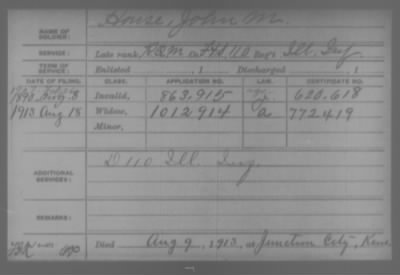 NAME OF SOLDIER: House, John M.
SERVICE: Late rank, Co. Reg't Ill. Inf.
TERM OF SERVICE: Enlisted , 1 Discharged , 1
DATE OF FILING. CLASS. APPLICATION NO. LAW. CERTIFICATE NO.
1890 Aug. 8 Invalid, 863,915 620.618
1913 Aug 18 Widow, 1012914 a 772419
Minor,
ADDITIONAL SERVICES: D 110 Ill. Inf.
REMARKS:
Died Aug 9, 1913, at Junction City, Kans.